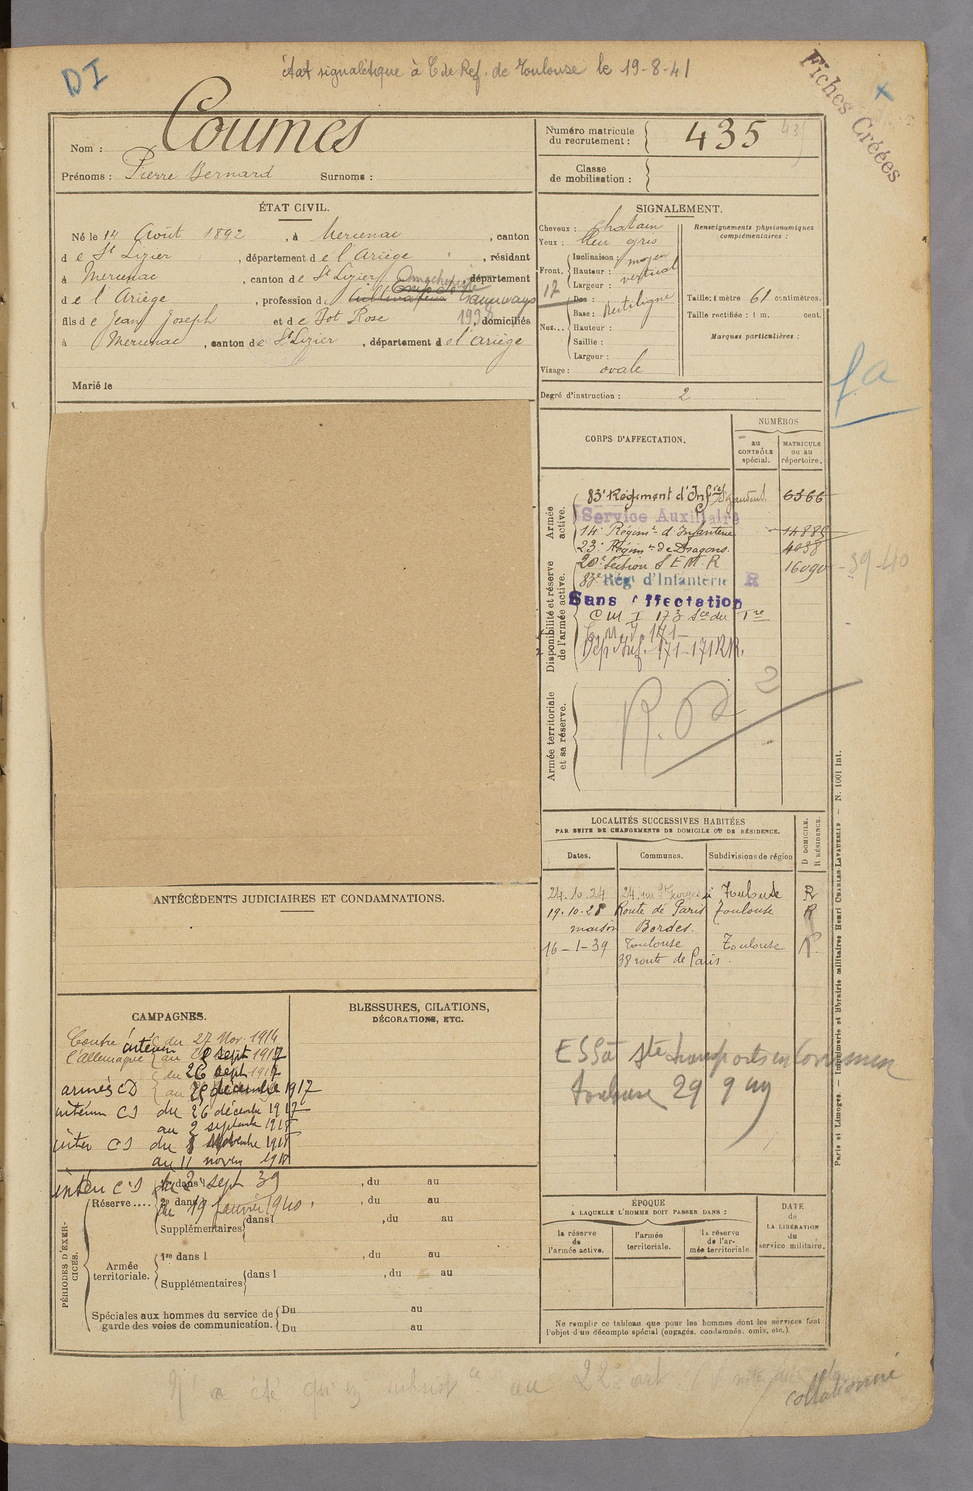 DI
état signalétique à C de Ref. de Toulouse le 19-8-41
Fiches Créées
Nom : Coumes
Prénoms : Pierre Bernard Surnoms :
Numéro matricule du recrutement : 435
Classe de mobilisation :
ÉTAT CIVIL.
Né le 14 Août 1892, à Mercenac, canton
d e St Lizier, département de l'Ariège, résidant
à Mercenac, canton de St Lizier, département
d e l'Ariège, profession de Cultivateur tramways
fils de Jean Joseph et de Fot Rose 1938, domiciliés
à Mercenac, canton de St Lizier, département de l'Ariège
Marié le
SIGNALEMENT.
Cheveux : chatain
Yeux : bleu gris
Front. Inclinaison : moyen
Hauteur : vertical
Largeur :
12
Nez... Dos : Rectiligne
Base :
Hauteur :
Saillie :
Largeur :
Visage : ovale
Renseignements physionomiques complémentaires :
Taille : 1 mètre 61 centimètres.
Taille rectifiée : 1 m. cent.
Marques particulières :
Degré d'instruction : 2
fa
CORPS D'AFFECTATION.
NUMÉROS
au CONTRÔLE spécial.
MATRICULE ou au répertoire.
Armée active.
83e Régiment d'Infrie St Gaudens 6366
Service Auxiliaire
14e Régimt d'Infanterie 14885
23e Régimt de Dragons. 4088
Disponibilité et réserve de l'armée active.
20e Section S E M R 16090 - 39-40
83e Rég. d'Infanterie R
Sans Affectation
C M I 173 Son du Tre
Dép. Inf. 171-171 RR.
Armée territoriale et sa réserve.
LOCALITÉS SUCCESSIVES HABITÉES
PAR SUITE DE CHANGEMENTS DE DOMICILE OU DE RÉSIDENCE.
Dates. Communes. Subdivisions de région
D DOMICILE. R RÉSIDENCE.
24.10.24 24 rue à Toulouse R
19.10.28 Route de Paris Toulouse R
maison Bordes.
16-1-39 Toulouse Toulouse R
38 route de Paris.
ANTÉCÉDENTS JUDICIAIRES ET CONDAMNATIONS.
CAMPAGNES.
Contre l'Allemagne intérieur du 27 Nov. 1914
au sept 1917
du 26 sept 1917
armées CD au 25 décembre 1917
intérieur CS du 26 décembre 1917
au 2 septembre 1918
inter CS du 8 1918
au 11 novem 1918
intérieur CS du 3 sept 39
au 19 janvier 1940.
BLESSURES, CITATIONS, DÉCORATIONS, ETC.
ESSA Sté transports en commun
Toulouse 29 9 41
PÉRIODES D'EXERCICES.
Réserve.... 1re dans l , du au
2e dans l , du au
Supplémentaires dans l , du au
Armée territoriale. 1re dans l , du au
Supplémentaires dans l , du au
Spéciales aux hommes du service de garde des voies de communication. Du au
Du au
ÉPOQUE
A LAQUELLE L'HOMME DOIT PASSER DANS :
la réserve de l'armée active.
l'armée territoriale.
la réserve de l'armée territoriale.
DATE de LA LIBÉRATION du service militaire.
Ne remplir ce tableau que pour les hommes dont les services font l'objet d'un décompte spécial (engagés, condamnés, omis, etc.)
Paris et Limoges. — Imprimerie et librairie militaires Henri CHARLES-LAVAUZELLE — N. 1001 Int.
collationné